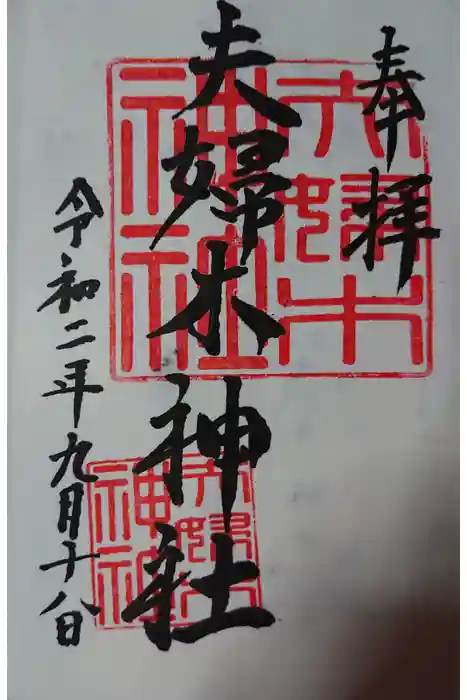 奉拝
夫婦木神社
令和二年九月十八日
夫婦木
神社
夫婦木
神社